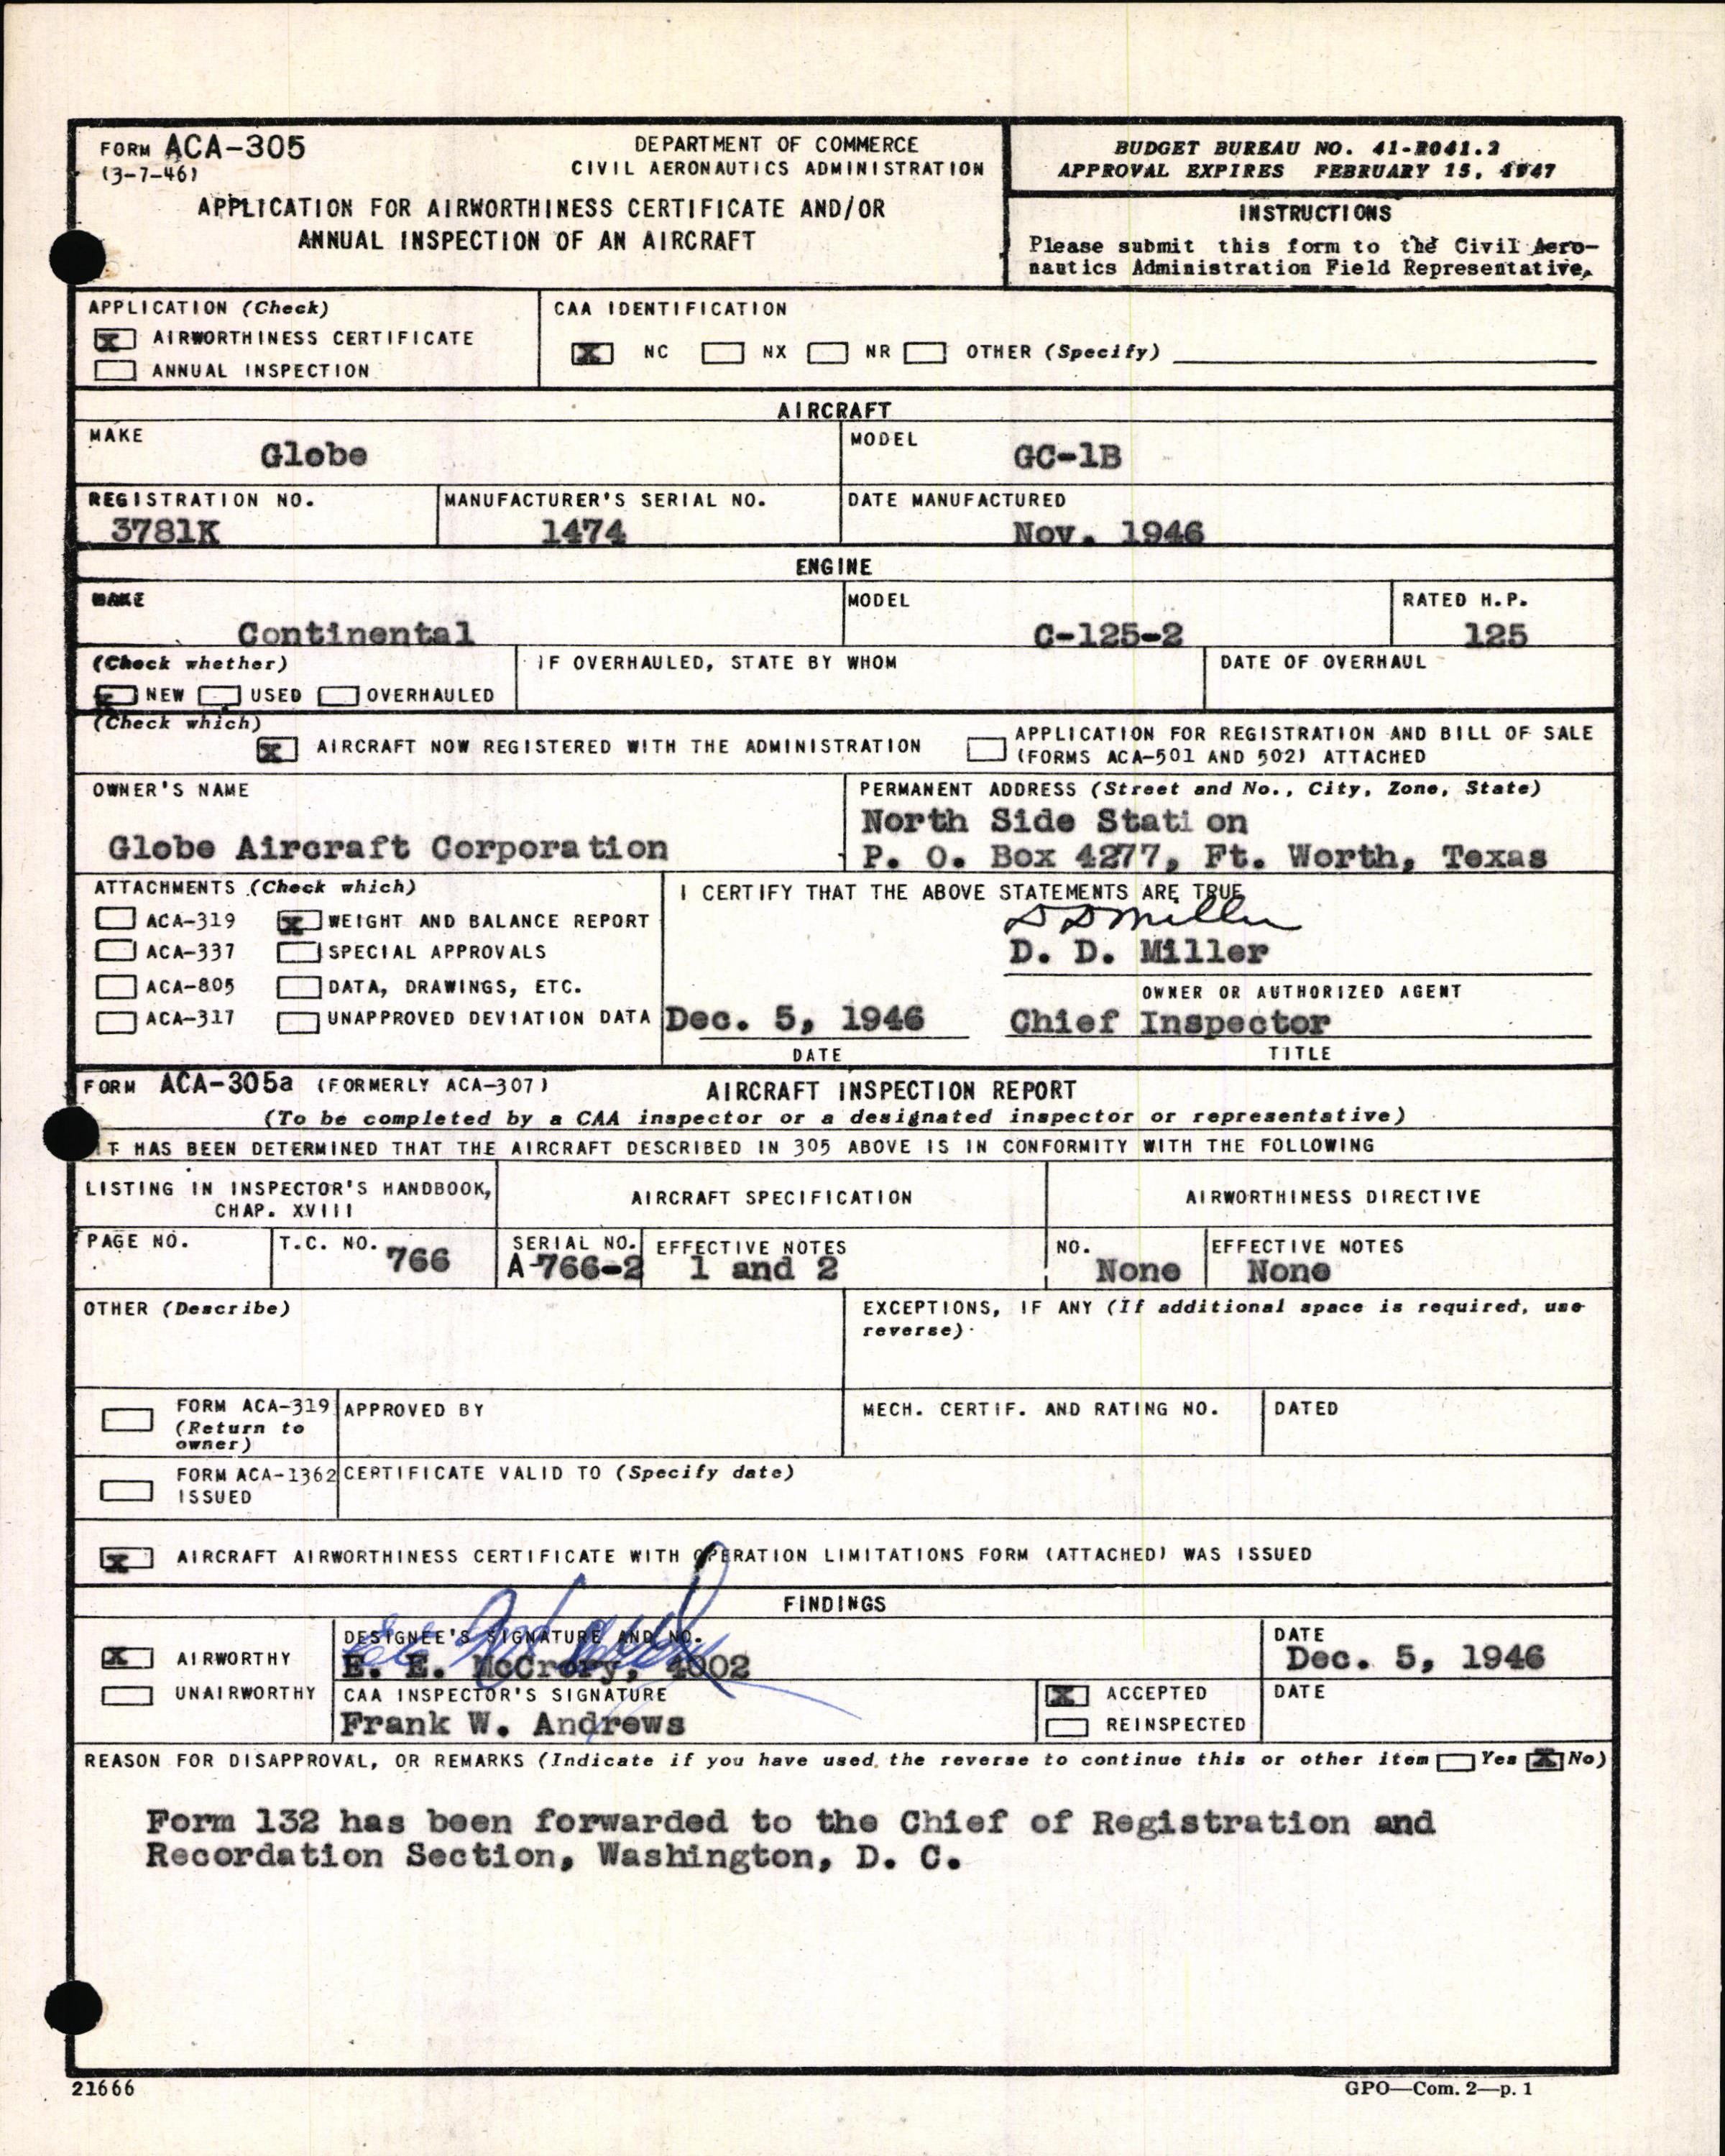 FORM ACA-305
(3-7-46)
DEPARTMENT OF COMMERCE
CIVIL AERONAUTICS ADMINISTRATION
APPLICATION FOR AIRWORTHINESS CERTIFICATE AND/OR
ANNUAL INSPECTION OF AN AIRCRAFT
BUDGET BUREAU NO. 41-R041.2
APPROVAL EXPIRES FEBRUARY 15, 1947
INSTRUCTIONS
Please submit this form to the Civil Aero-
nautics Administration Field Representative.
APPLICATION (Check)
X AIRWORTHINESS CERTIFICATE
ANNUAL INSPECTION
CAA IDENTIFICATION
X NC NX NR OTHER (Specify)
AIRCRAFT
MAKE
Globe
MODEL
GC-1B
REGISTRATION NO.
3781K
MANUFACTURER'S SERIAL NO.
1474
DATE MANUFACTURED
Nov. 1946
ENGINE
MAKE
Continental
MODEL
C-125-2
RATED H.P.
125
(Check whether)
x NEW USED OVERHAULED
IF OVERHAULED, STATE BY WHOM
DATE OF OVERHAUL
(Check which)
X AIRCRAFT NOW REGISTERED WITH THE ADMINISTRATION
APPLICATION FOR REGISTRATION AND BILL OF SALE
(FORMS ACA-501 AND 502) ATTACHED
OWNER'S NAME
Globe Aircraft Corporation
PERMANENT ADDRESS (Street and No., City, Zone, State)
North Side Station
P. O. Box 4277, Ft. Worth, Texas
ATTACHMENTS (Check which)
ACA-319 X WEIGHT AND BALANCE REPORT
ACA-337 SPECIAL APPROVALS
ACA-805 DATA, DRAWINGS, ETC.
ACA-317 UNAPPROVED DEVIATION DATA
I CERTIFY THAT THE ABOVE STATEMENTS ARE TRUE
D D Miller
D. D. Miller
OWNER OR AUTHORIZED AGENT
Dec. 5, 1946 Chief Inspector
DATE TITLE
FORM ACA-305a (FORMERLY ACA-307) AIRCRAFT INSPECTION REPORT
(To be completed by a CAA inspector or a designated inspector or representative)
IT HAS BEEN DETERMINED THAT THE AIRCRAFT DESCRIBED IN 305 ABOVE IS IN CONFORMITY WITH THE FOLLOWING
LISTING IN INSPECTOR'S HANDBOOK,
CHAP. XVIII
AIRCRAFT SPECIFICATION
AIRWORTHINESS DIRECTIVE
PAGE NO.
T.C. NO. 766
SERIAL NO.
A-766-2
EFFECTIVE NOTES
1 and 2
NO.
None
EFFECTIVE NOTES
None
OTHER (Describe)
EXCEPTIONS, IF ANY (If additional space is required, use
reverse)
FORM ACA-319
(Return to
owner)
APPROVED BY
MECH. CERTIF. AND RATING NO.
DATED
FORM ACA-1362
ISSUED
CERTIFICATE VALID TO (Specify date)
X AIRCRAFT AIRWORTHINESS CERTIFICATE WITH OPERATION LIMITATIONS FORM (ATTACHED) WAS ISSUED
FINDINGS
X AIRWORTHY
UNAIRWORTHY
DESIGNEE'S SIGNATURE AND NO.
E. E. McCrory, 4002
DATE
Dec. 5, 1946
CAA INSPECTOR'S SIGNATURE
Frank W. Andrews
X ACCEPTED
REINSPECTED
DATE
REASON FOR DISAPPROVAL, OR REMARKS (Indicate if you have used the reverse to continue this or other item Yes X No)
Form 132 has been forwarded to the Chief of Registration and
Recordation Section, Washington, D. C.
21666
GPO—Com. 2—p. 1